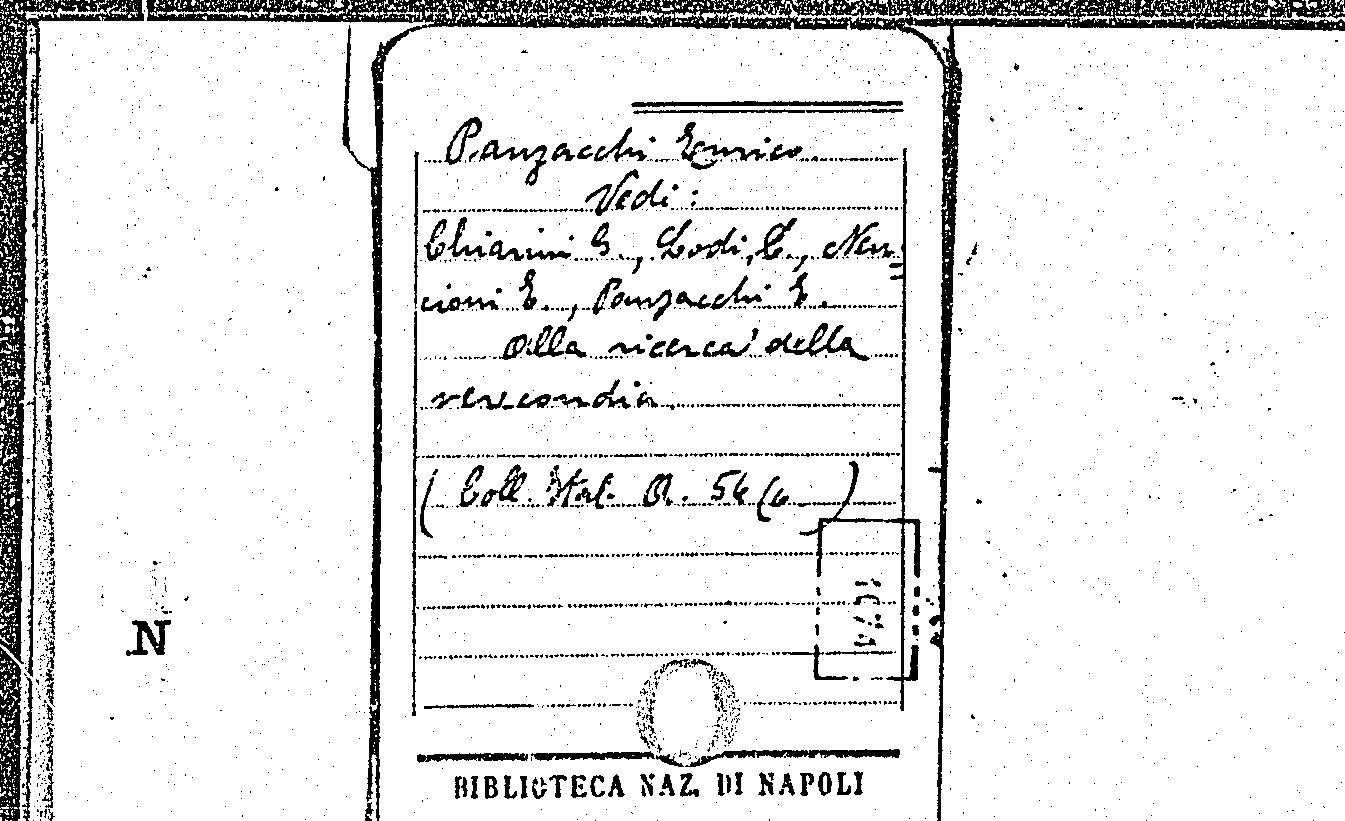 Panzacchi Enrico.
Vedi:
Chiarini G., Lodi, L., Nen=
cioni E., Panzacchi E.
Alla ricerca della
verecondia.
(Coll. Ital. A. 54 (6 )
N
BIBLIOTECA NAZ. DI NAPOLI